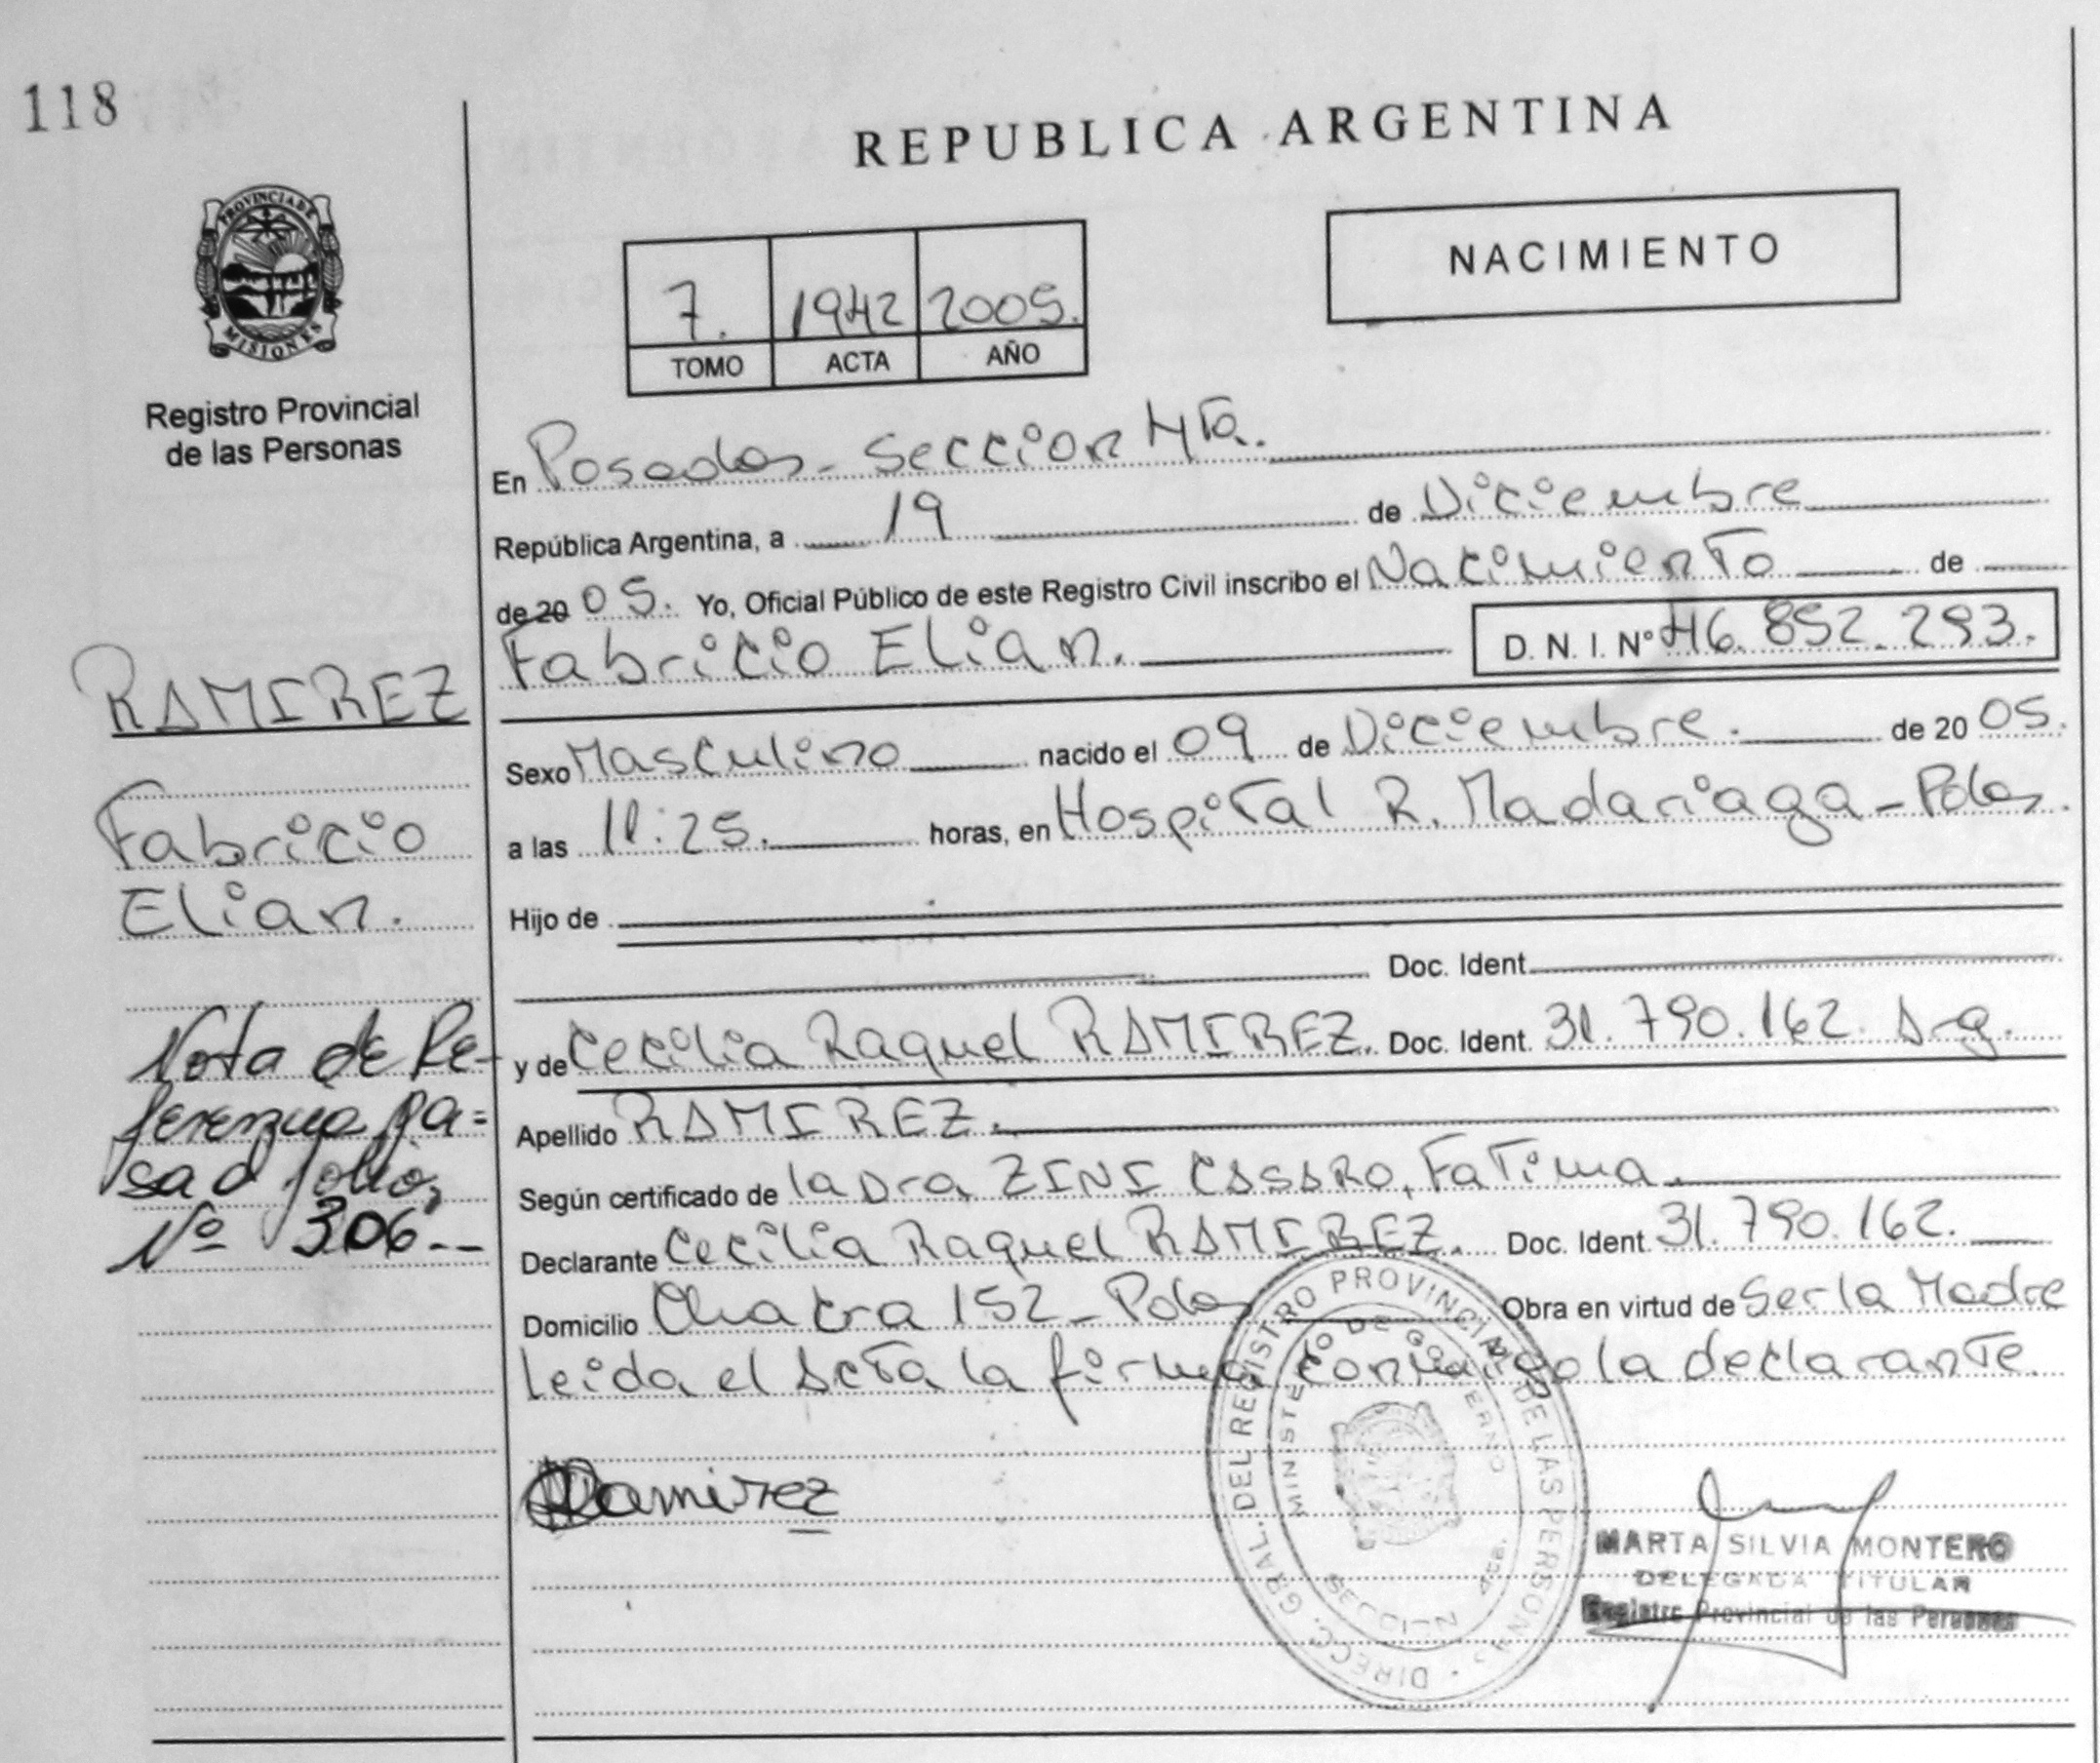 118
REPUBLICA ARGENTINA
PROVINCIA DE
MISIONES
Registro Provincial
de las Personas
NACIMIENTO
7. 1942 2005.
TOMO ACTA AÑO
En Posadas - Seccion 4ta.
República Argentina, a 19 de Diciembre
de 20 05. Yo, Oficial Público de este Registro Civil inscribo el Nacimiento de
Fabricio Elian. D. N. I. Nº 46.852.293.
RAMIREZ
Fabricio
Elian.
Sexo Masculino nacido el 09 de Diciembre. de 20 05.
a las 11:25. horas, en Hospital R. Madariaga - Pdas.
Hijo de
Doc. Ident.
y de Cecilia Raquel RAMIREZ. Doc. Ident. 31.790.162. Arg.
Apellido RAMIREZ.
Según certificado de la Dra ZINI CASARO, Fatima.
Declarante Cecilia Raquel RAMIREZ. Doc. Ident. 31.790.162.
Domicilio Chacra 152 - Pdas Obra en virtud de Ser la Madre
Leida el Acta la firma conmigo la declarante.
Nota de Re-
ferencia pa=
sa al folio,
Nº 306.--
Ramirez
DIRECC. GRAL. DEL REGISTRO PROVINCIAL DE LAS PERSONAS
MINISTERIO DE GOBIERNO
SECCION 4ta.
MARTA SILVIA MONTERO
DELEGADA TITULAR
Registro Provincial de las Personas